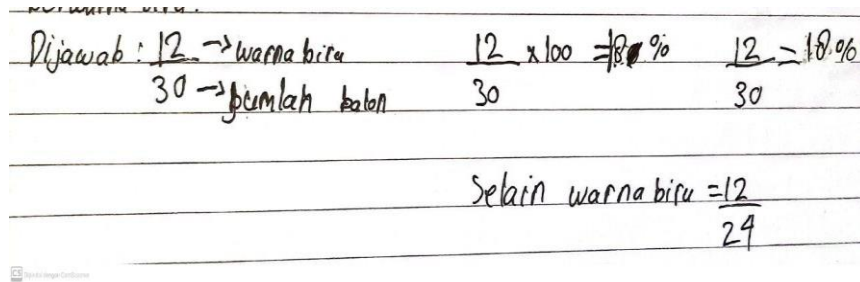 berwarna biru.
Dijawab : 12/30 → warna biru → jumlah balon
12/30 x 100 = 18 %
12/30 = 18 %
Selain warna biru = 12/24
CS